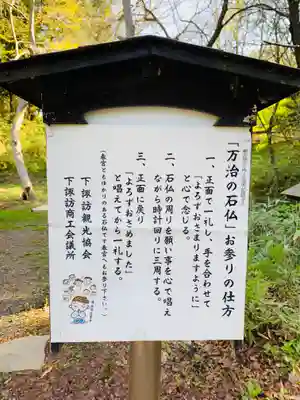 「万治の石仏」お参りの仕方
一、正面で一礼し、手を合わせて
「よろずおさまりますように」
と心で念じる。
二、石仏の周りを願い事を心で唱え
ながら時計回りに三周する。
三、正面に戻り
「よろずおさめました」
と唱えてから一礼する。
（春宮ともゆかりのある石仏です春宮へもお参り下さい。）
下諏訪観光協会
下諏訪商工会議所